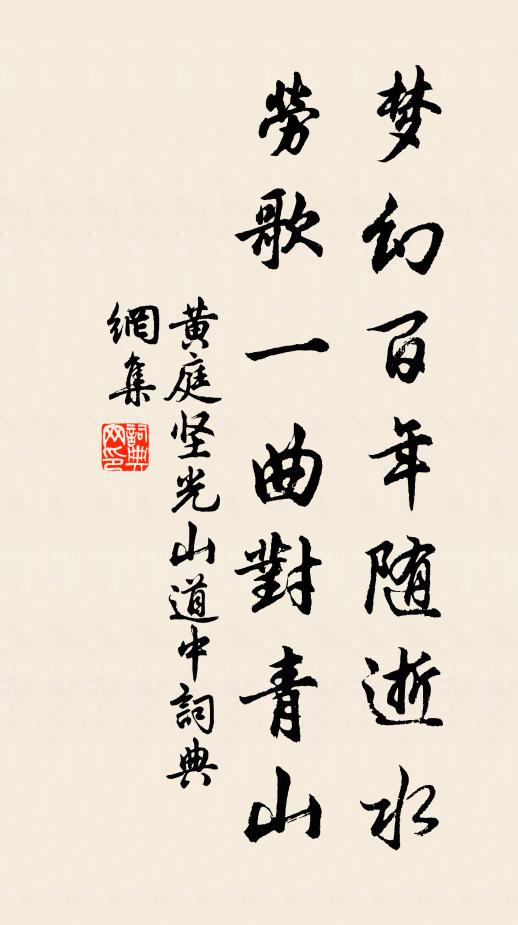 梦幻百年随逝水
劳歌一曲對青山
黄庭坚光山道中詞典
網集
詞典
网印